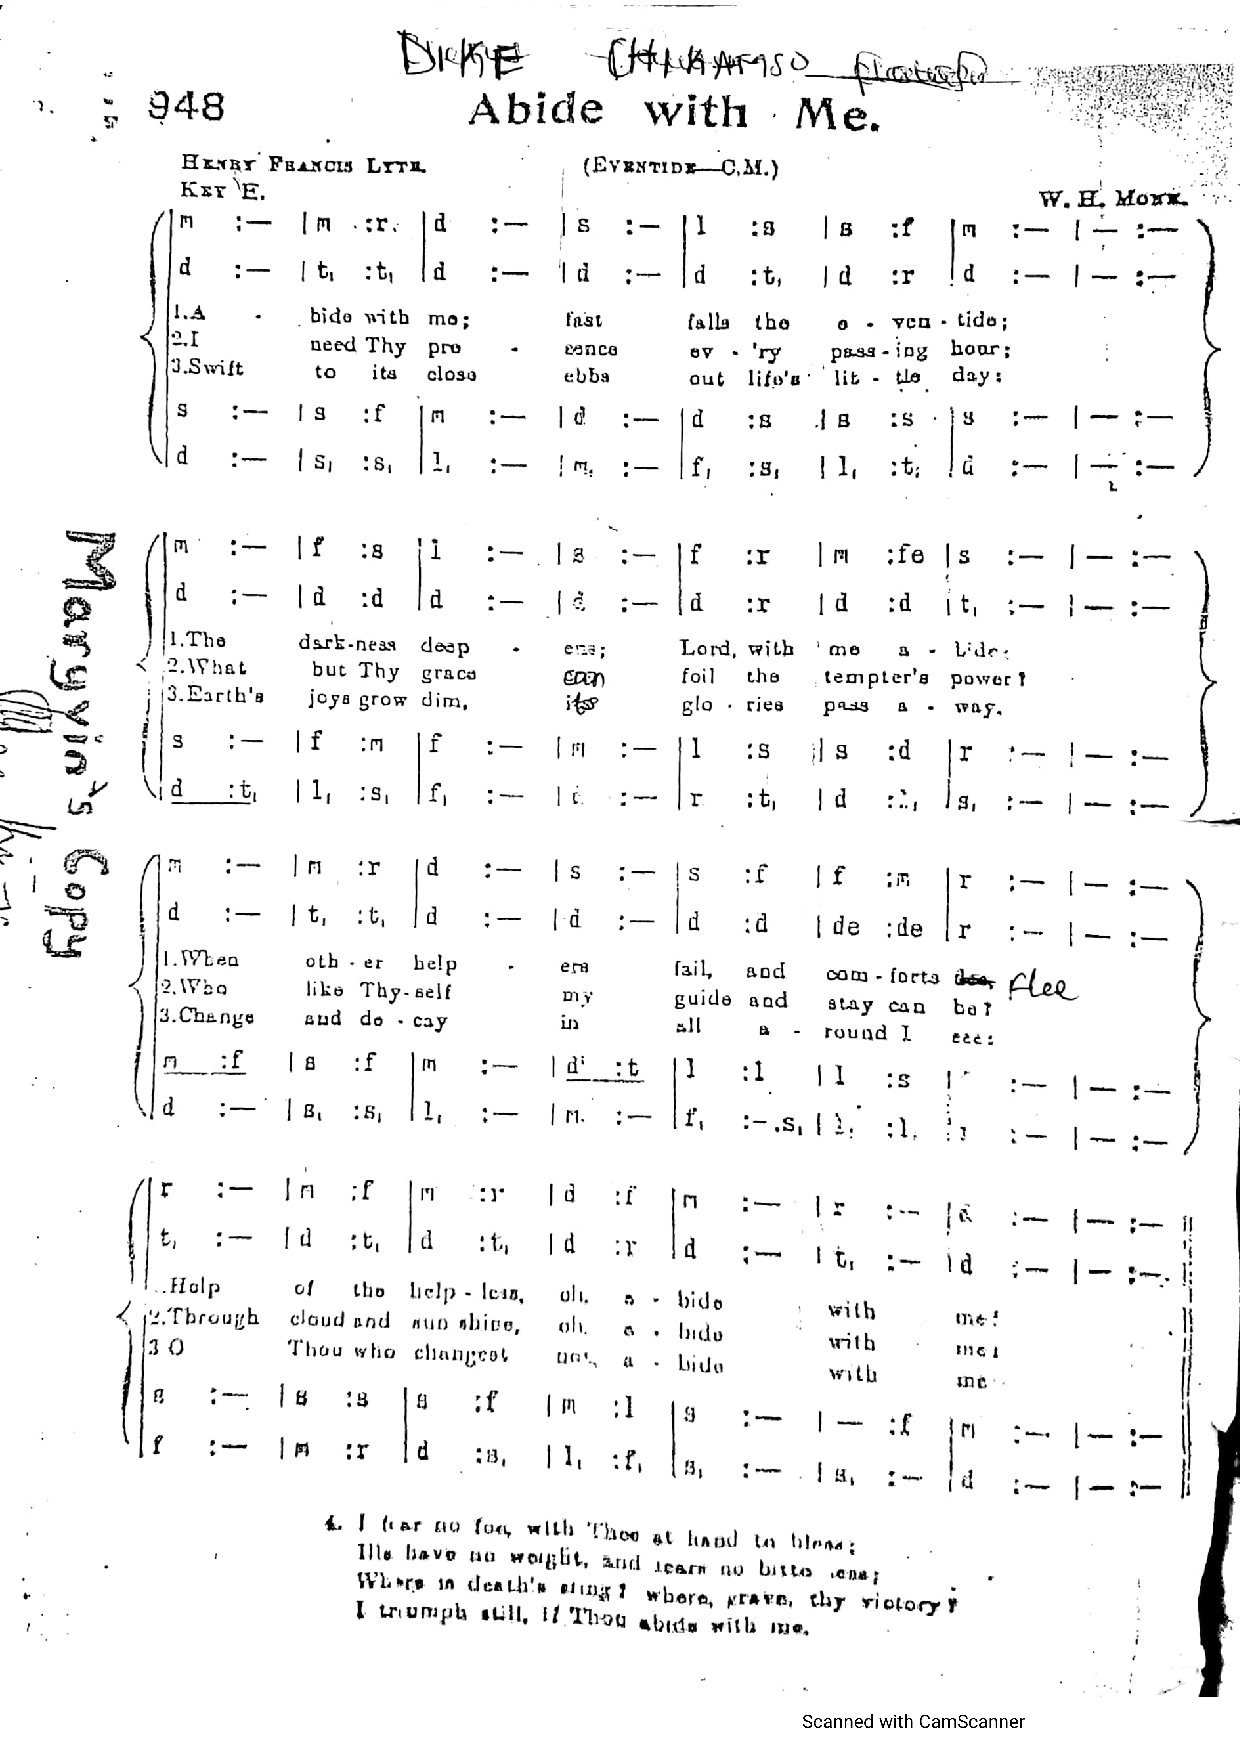 948
Abide with Me.
HENRY FRANCIS LYTE.
(EVENTIDE—C.M.)
KEY E.
W. H. MONK.
m :— | m :r | d :— | s :— | l :s | s :f | m :— | — :—
d :— | t, :t, | d :— | d :— | d :t, | d :r | d :— | — :—
1.A - bide with me; fast falls the e - ven - tide;
2.I need Thy pre - sence ev - 'ry pass - ing hour;
3.Swift to its close ebbs out life's lit - tle day:
s :— | s :f | m :— | d :— | d :s | s :s | s :— | — :—
d :— | s, :s, | l, :— | m, :— | f, :s, | l, :t, | d :— | — :—
m :— | f :s | l :— | s :— | f :r | m :fe | s :— | — :—
d :— | d :d | d :— | d :— | d :r | d :d | t, :— | — :—
1.The dark-ness deep - ens; Lord, with me a - bide:
2.What but Thy grace can foil the tempter's power?
3.Earth's joys grow dim, its glo - ries pass a - way.
s :— | f :m | f :— | m :— | l :s | s :d | r :— | — :—
d :t, | l, :s, | f, :— | :— | r :t, | d : | s, :— | — :—
m :— | m :r | d :— | s :— | s :f | f :m | r :— | — :—
d :— | t, :t, | d :— | d :— | d :d | de :de | r :— | — :—
1.When oth - er help - ers fail, and com - forts flee
2.Who like Thy-self my guide and stay can be?
3.Change and de - cay in all a - round I see:
m :f | s :f | m :— | d' :t | l :l | l :s | :— | — :—
d :— | s, :s, | l, :— | m, :— | f, :–.s, | l, :l, | :— | — :—
r :— | m :f | m :r | d :f | m :— | r :— | d :— | — :—
t, :— | d :t, | d :t, | d :r | d :— | t, :— | d :— | — :—
Help of the help - less, oh, a - bide with me!
2.Through cloud and sun shine, oh, a - bide with me!
3 O Thou who changest not, a - bide with me
s :— | s :s | s :f | m :l | s :— | — :f | m :— | — :—
f :— | m :r | d :s, | l, :f, | s, :— | s, :— | d :— | — :—
4. I fear no foe, with Thee at hand to bless;
Ills have no weight, and tears no bitte
Where is death's sting? where, grave, thy victory?
I triumph still, if Thou abide with me.
Maryvin's Copy
Scanned with CamScanner